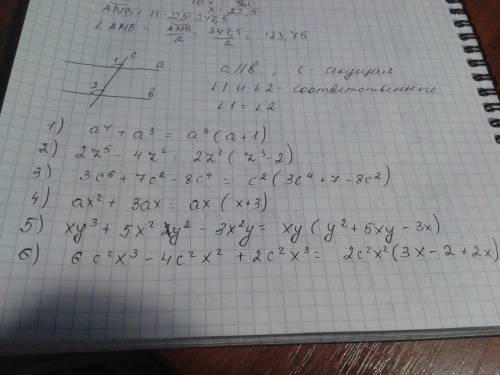 ANB = 11 · 22,5 = 247,5
∠ANB = ANB/2 = 247,5/2 = 123,75
c
1
a
2
b
a||b, c - секущая
∠1 и ∠2 - соответственные
∠1 = ∠2
1) a⁴ + a³ = a³(a+1)
2) 2z⁵ - 4z² = 2z²(z³-2)
3) 3c⁶ + 7c² - 8c⁴ = c²(3c⁴ + 7 - 8c²)
4) ax² + 3ax = ax(x+3)
5) xy³ + 5x²y² - 3x²y = xy(y² + 5xy - 3x)
6) 6c²x³ - 4c²x² + 2c²x³ = 2c²x²(3x - 2 + 2x)